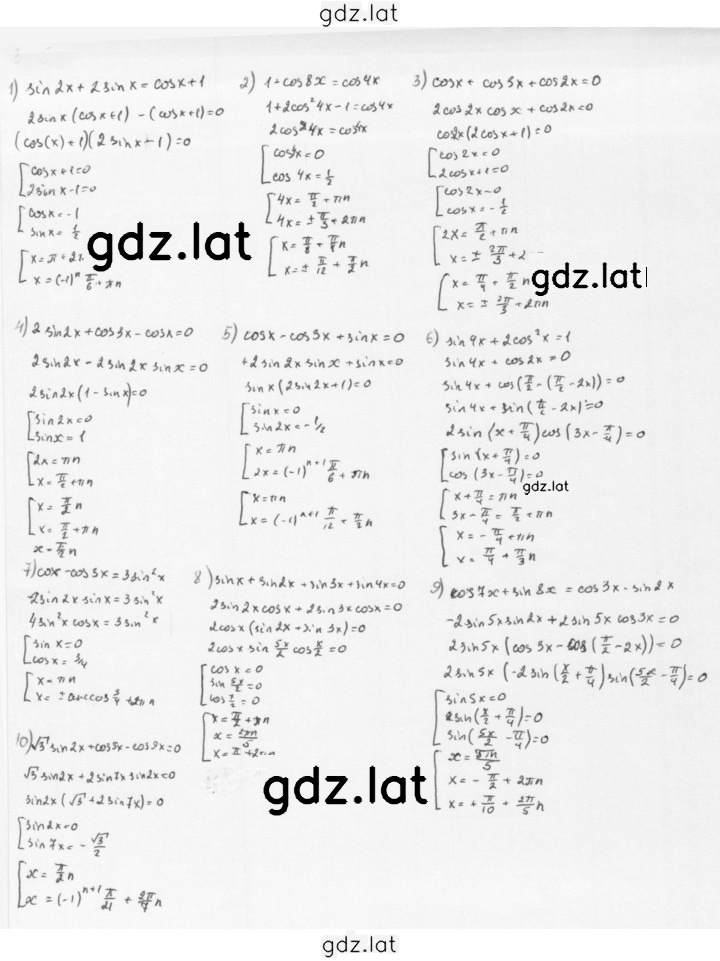 gdz.lat
1) sin 2x + 2 sin x = cos x + 1
2 sin x (cos x + 1) - (cos x + 1) = 0
(cos(x) + 1)(2 sin x - 1) = 0
[cos x + 1 = 0
2 sin x - 1 = 0
[cos x = -1
sin x = 1/2
[x = π + 2
x = (-1)^n π/6 + πn
2) 1 + cos 8x = cos 4x
1 + 2cos² 4x - 1 = cos 4x
2cos² 4x = cos 4x
[cos 4x = 0
cos 4x = 1/2
[4x = π/2 + πn
4x = ± π/3 + 2πn
[x = π/8 + π/8 n
x = ± π/12 + π/2 n
3) cos x + cos 3x + cos 2x = 0
2 cos 2x cos x + cos 2x = 0
cos 2x (2 cos x + 1) = 0
[cos 2x = 0
2 cos x + 1 = 0
[cos 2x = 0
cos x = - 1/2
[2x = π/2 + πn
x = ± 2π/3 + 2
[x = π/4 + π/2 n
x = ± 2π/3 + 2πn
gdz.lat
gdz.lat
4) 2 sin 2x + cos 3x - cos x = 0
2 sin 2x - 2 sin 2x sin x = 0
2 sin 2x (1 - sin x) = 0
[sin 2x = 0
sin x = 1
[2x = πn
x = π/2 + πn
[x = π/2 n
x = π/2 + πn
x = π/2 n
5) cos x - cos 3x + sin x = 0
+ 2 sin 2x sin x + sin x = 0
sin x (2 sin 2x + 1) = 0
[sin x = 0
sin 2x = - 1/2
[x = πn
2x = (-1)^n+1 π/6 + πn
[x = πn
x = (-1)^n+1 π/12 + π/2 n
6) sin 4x + 2 cos² x = 1
sin 4x + cos 2x = 0
sin 4x + cos(π/2 - (π/2 - 2x)) = 0
sin 4x + sin(π/2 - 2x) = 0
2 sin (x + π/4) cos (3x - π/4) = 0
[sin(x + π/4) = 0
cos (3x - π/4) = 0
gdz.lat
[x + π/4 = πn
3x - π/4 = π/2 + πn
[x = - π/4 + πn
x = π/4 + π/3 n
7) cos x - cos 3x = 3 sin² x
-2 sin 2x sin x = 3 sin² x
4 sin² x cos x = 3 sin² x
[sin x = 0
cos x = 3/4
[x = πn
x = ± arccos 3/4 + 2πn
8) sin x + sin 2x + sin 3x + sin 4x = 0
2 sin 2x cos x + 2 sin 3x cos x = 0
2 cos x (sin 2x + sin 3x) = 0
2 cos x sin 5x/2 cos x/2 = 0
[cos x = 0
sin 5x/2 = 0
cos x/2 = 0
[x = π/2 + πn
x = 2πn/5
x = π + 2πn
9) cos 7x + sin 8x = cos 3x - sin 2x
-2 sin 5x sin 2x + 2 sin 5x cos 3x = 0
2 sin 5x (cos 3x - cos (π/2 - 2x)) = 0
2 sin 5x (-2 sin (x/2 + π/4) sin(5x/2 - π/4) = 0
[sin 5x = 0
2 sin (x/2 + π/4) = 0
sin (5x/2 - π/4) = 0
[x = πn/5
x = - π/2 + 2πn
x = + π/10 + 2π/5 n
10) √3 sin 2x + cos 5x - cos 9x = 0
√3 sin 2x + 2 sin 7x sin 2x = 0
sin 2x (√3 + 2 sin 7x) = 0
[sin 2x = 0
sin 7x = - √3/2
[x = π/2 n
x = (-1)^n+1 π/21 + π/7 n
gdz.lat
gdz.lat